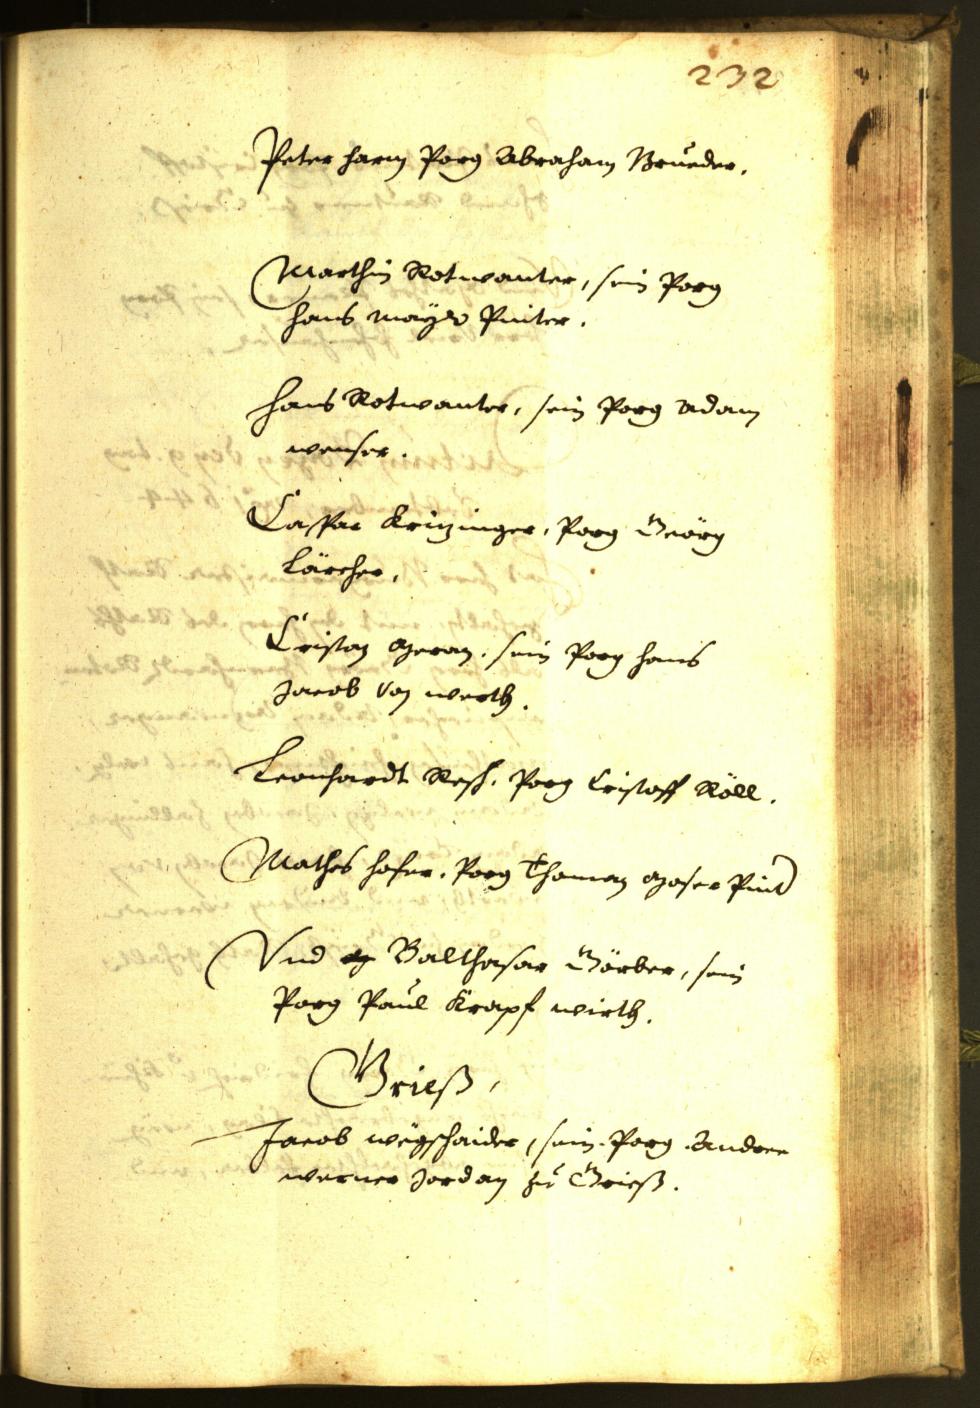 232
Peter Harm Porg Abraham Brueder.
Marthin Rotwanter, sein Porg
Hans Mayr Pinter.
Hans Rotwanter, sein Porg Adam
wenser.
Caspar Kritzinger, Porg Geörg
Lärcher,
Cristan sein Porg Hans
Jacob von werth.
Leonhardt Resch. Porg Cristoff Röll.
Mathes Hofer. Porg Thoman Moser Pint
Vnd Balthasar Görber, sein
Porg Paul Krapf wirth.
Grieß,
Jacob wegschaider, sein Porg Andree
werner Jordan zu Grieß.